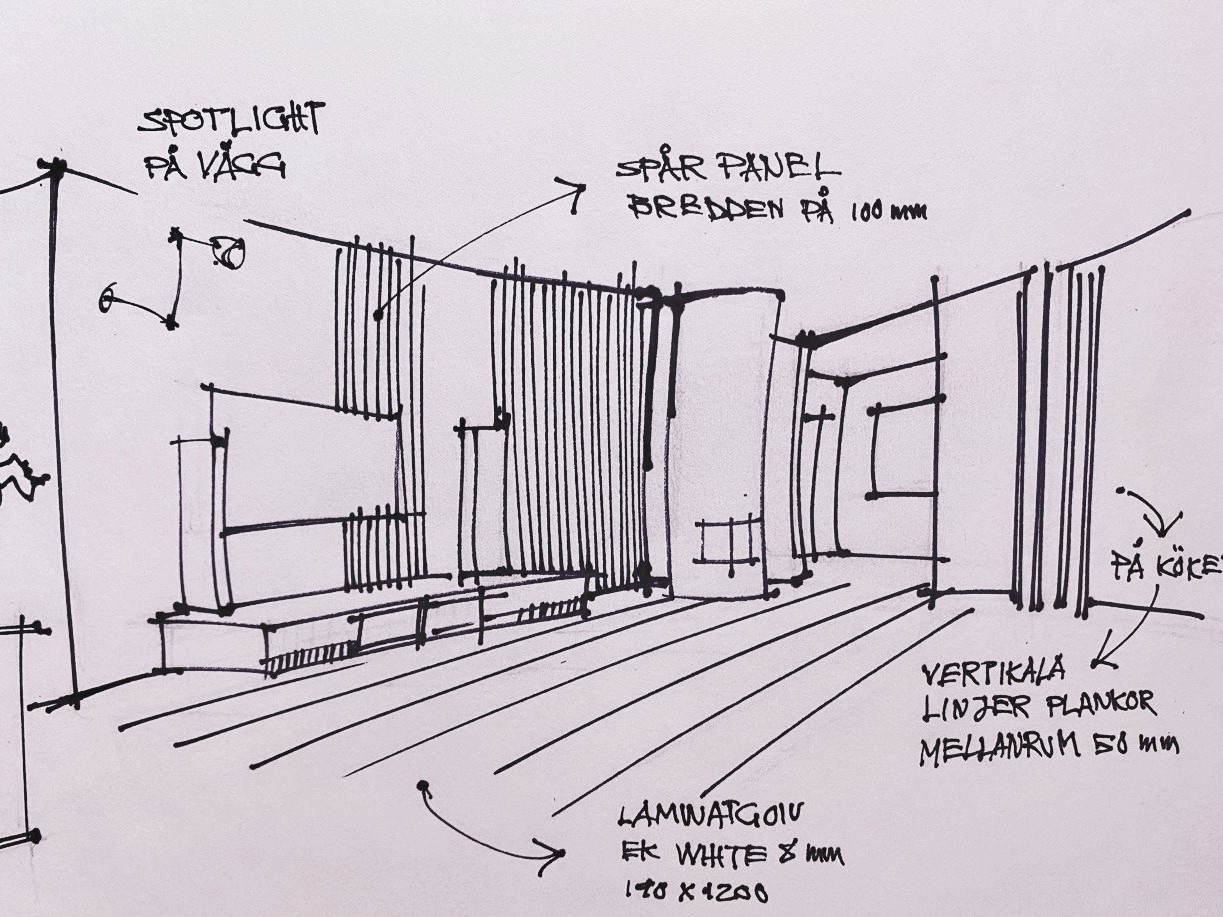 SPOTLIGHT
PÅ VÄGG
SPÅR PANEL
BREDDEN PÅ 100 mm
PÅ KÖKE
VERTIKALA
LINJER PLANKOR
MELLANRUM 50 mm
LAMINATGOLV
EK WHITE 8 mm
190 X 1200